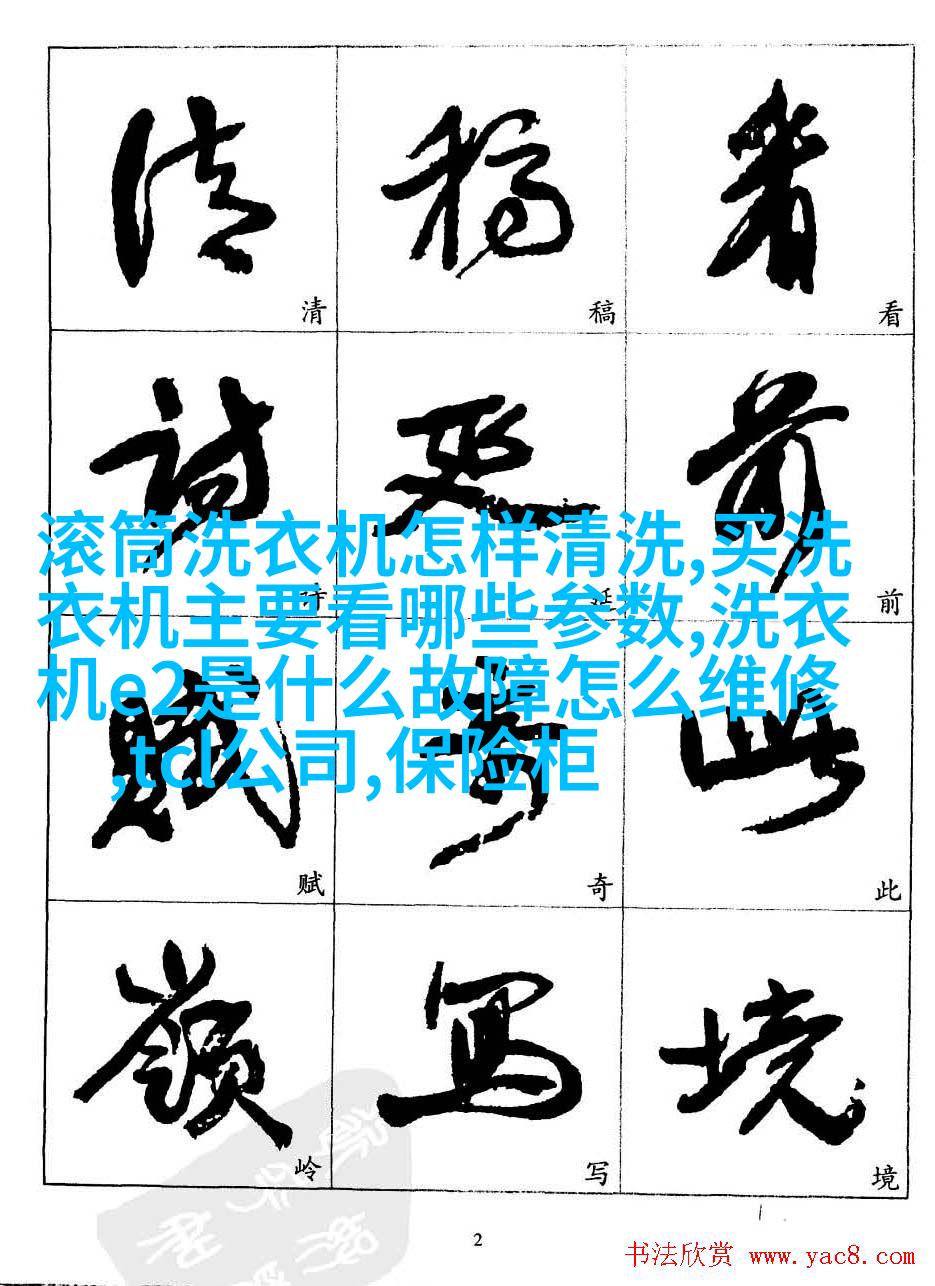 清 稿 看
清 稿 看
詩 延 前
诗 延 前
滚筒洗衣机怎样清洗,买洗
衣机主要看哪些参数,洗衣
机e2是什么故障怎么维修
,tcl公司,保险柜
賦 奇 此
赋 奇 此
嶺 寫 境
岭 写 境
2
书法欣赏 www.yac8.com